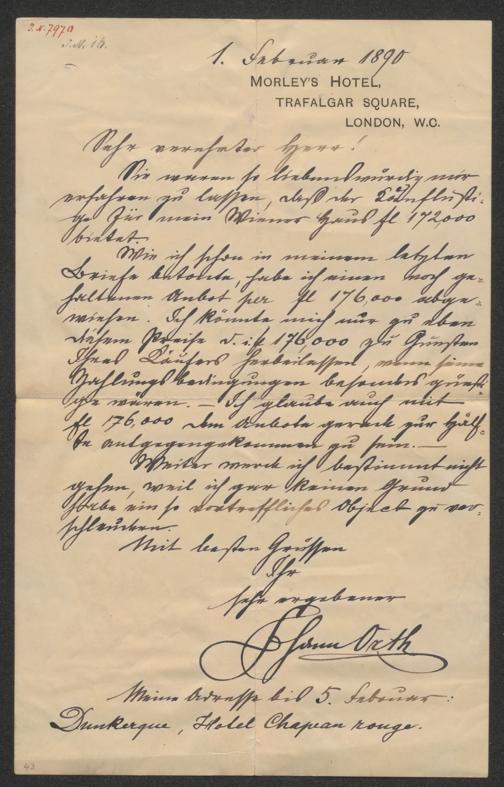 J.N. 7970
1. Februar 1890
MORLEY'S HOTEL,
TRAFALGAR SQUARE,
LONDON, W.C.
Sehr verehrter Herr!
Sie waren so liebenswürdig mir
erfahren zu lassen, daß der Kauflusti-
ge für mein Wiener Haus fl 172000
bietet.
Wie ich schon in meinem letzten
Briefe betonte, habe ich einen noch ge-
haltenen Anbot per fl 176,000 abge-
wiesen. Ich könnte mich nur zu eben
diesem Preise d. i. fl 176000 zu Gunsten
Ihres Käufers herbeilassen, wenn seine
Zahlungsbedingungen besonders günsti-
ge wären. — Ich glaube auch mit
fl 176,000 dem Anbote gerade zur Hälf-
te entgegengekommen zu sein. —
Weiter werde ich bestimmt nicht
gehen, weil ich gar keinen Grund
habe ein so vortreffliches Object zu ver-
schleudern.
Mit besten Grüssen
Ihr
sehr ergebener
Johann Orth
Meine Adresse bis 5. Februar:
Dunkerque, Hotel Chapeau rouge.
43